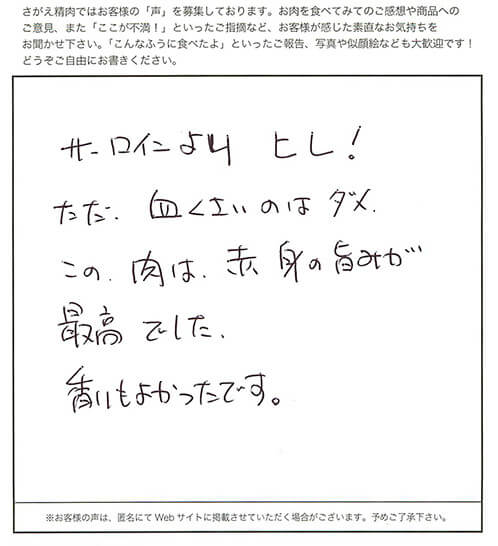 さがえ精肉ではお客様の「声」を募集しております。お肉を食べてみてのご感想や商品への
ご意見、また「ここが不満！」といったご指摘など、お客様が感じた素直なお気持ちを
お聞かせ下さい。「こんなふうに食べたよ」といったご報告、写真や似顔絵なども大歓迎です！
どうぞご自由にお書きください。
サーロインより ヒレ！
ただ、血くさいのは ダメ、
この、肉は、赤身の旨みが
最高でした、
香りもよかったです。
※お客様の声は、匿名にて Web サイトに掲載させていただく場合がございます。予めご了承下さい。